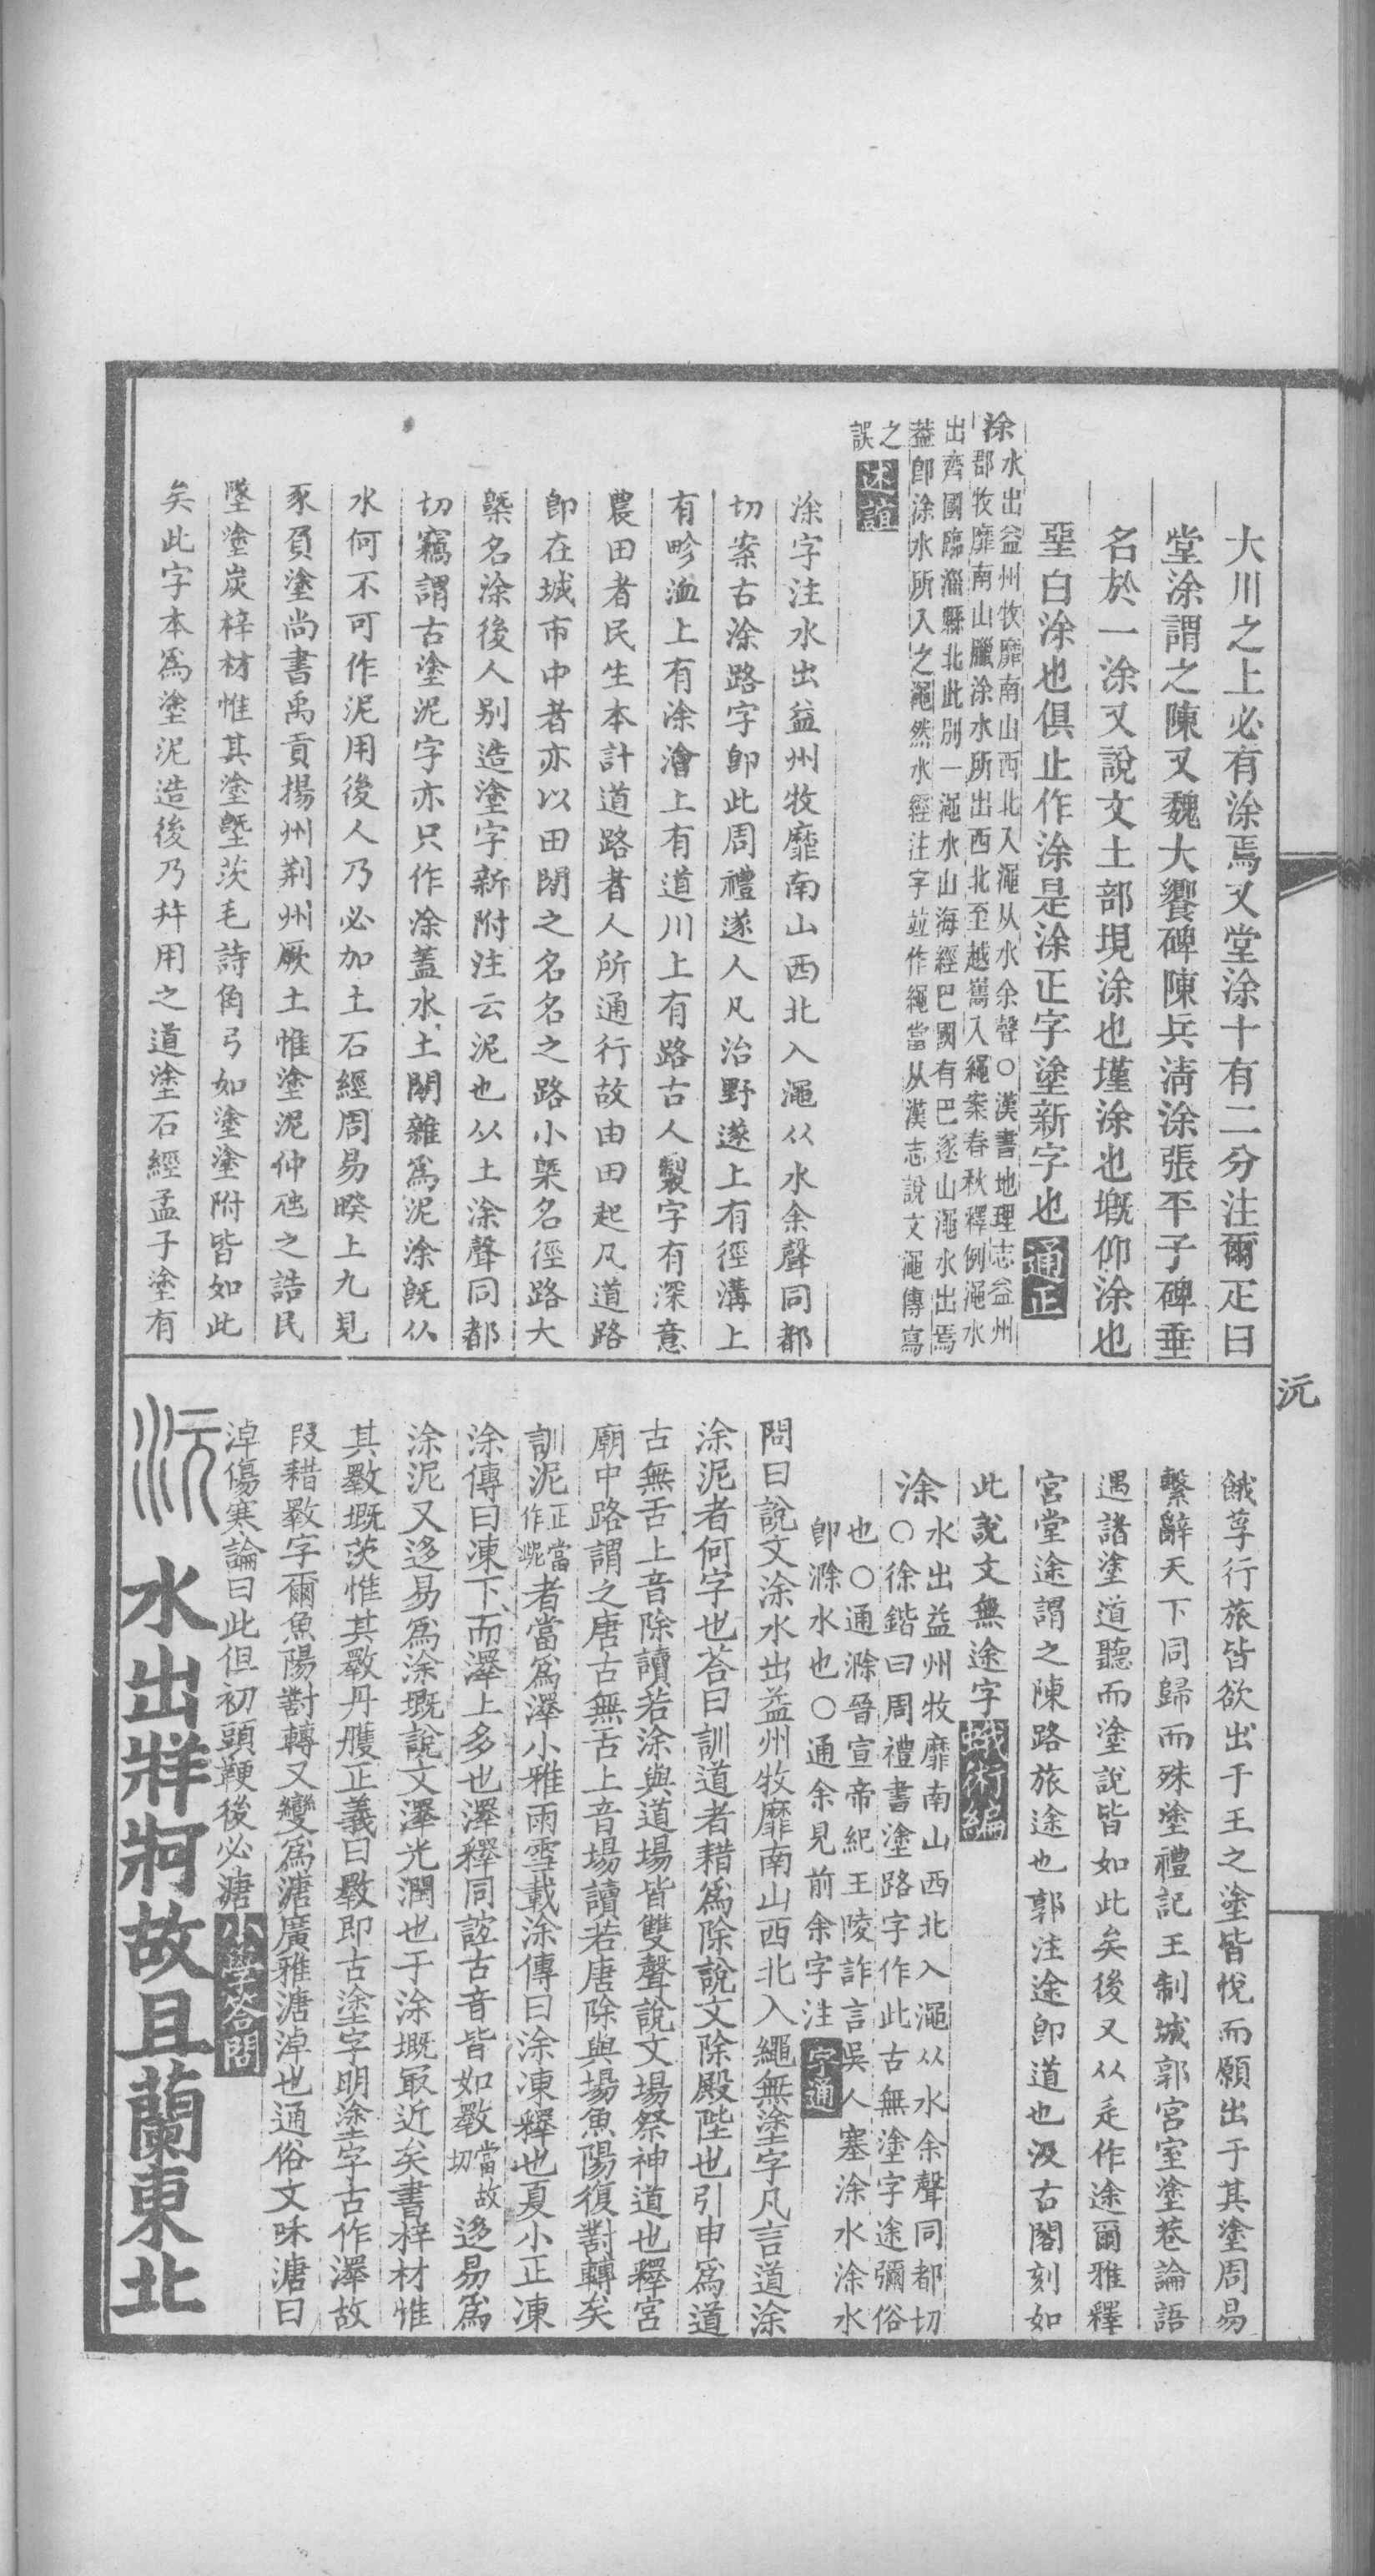 大川之上必有涂焉又堂涂十有二分注爾疋曰
堂涂謂之陳又魏大饗碑陳兵淸涂張平子碑垂
名於一涂又說文土部垷涂也墐涂也墍仰涂也
堊白涂也俱止作涂是涂正字塗新字也通正
涂水出益州牧靡南山西北入澠从水余聲○漢書地理志益州
郡牧靡南山臘涂水所出西北至越嶲入繩案春秋釋例澠水
出齊國臨淄縣北此別一澠水山海經巴國有巴遂山澠水出焉
葢卽涂水所入之澠然水經注字竝作繩當从漢志說文澠傳寫
之誤述誼
涂字注水出益州牧靡南山西北入澠从水余聲同都
切案古涂路字卽此周禮遂人凡治野遂上有徑溝上
有畛洫上有涂澮上有道川上有路古人製字有深意
農田者民生本計道路者人所通行故由田起凡道路
卽在城市中者亦以田閒之名名之路小槩名徑路大
槩名涂後人別造塗字新附注云泥也从土涂聲同都
切竊謂古塗泥字亦只作涂蓋水土閒雜爲泥涂旣从
水何不可作泥用後人乃必加土石經周易睽上九見
豕負塗尚書禹貢揚州荆州厥土惟塗泥仲虺之誥民
墜塗炭梓材惟其塗墍茨毛詩角弓如塗塗附皆如此
矣此字本爲塗泥造後乃幷用之道塗石經孟子塗有
沅
餓莩行旅皆欲出于王之塗皆悅而願出于其塗周易
繫辭天下同歸而殊塗禮記王制城郭宮室塗巷論語
遇諸塗道聽而塗說皆如此矣後又从辵作途爾雅釋
宮堂途謂之陳路旅途也郭注途卽道也汲古閣刻如
此說文無途字蛾術編
涂水出益州牧靡南山西北入澠从水余聲同都切
○徐鍇曰周禮書塗路字作此古無塗字途彌俗
也○通滁晉宣帝紀王陵詐言吳人塞涂水涂水
卽滁水也○通余見前余字注字通
問曰說文涂水出益州牧靡南山西北入繩無塗字凡言道涂
涂泥者何字也荅曰訓道者耤爲除說文除殿陛也引申爲道
古無舌上音除讀若涂與道場皆雙聲說文場祭神道也釋宮
廟中路謂之唐古無舌上音場讀若唐除與場魚陽復對轉矣
訓泥正當作坭者當爲澤小雅雨雪載涂傳曰涂凍釋也夏小正凍
涂傳曰凍下而澤上多也澤釋同誼古音皆如斁當故切迻易爲
涂泥又迻易爲涂墍說文澤光潤也于涂墍最近矣書梓材惟
其斁墍茨惟其斁丹雘正義曰斁即古塗字明塗字古作澤故
叚耤斁字爾魚陽對轉又孌爲溏廣雅溏淖也通俗文咊溏曰
淖傷寒論曰此但初頭鞕後必溏小學答問
沅水出牂牁故且蘭東北